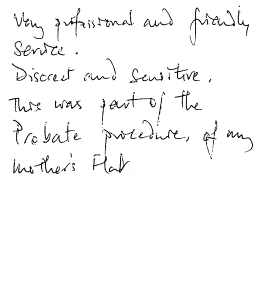 Very professional and friendly
Service.
Discreet and Sensitive.
This was part of the
Probate procedure, of my
Mother's Flat